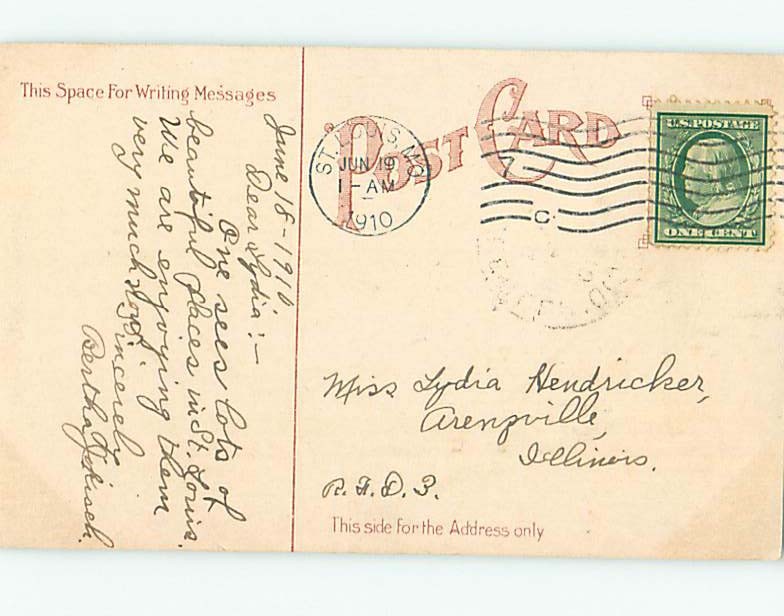 This Space For Writing Messages
June 18-1910
Dear Lydia:-
One sees lots of
beautiful places in St. Louis.
We are enjoying them
very much.
Sincerely
Bertha
POST CARD
ST. LOUIS, MO.
JUN 19
1-AM
1910
C
U.S. POSTAGE
ONE CENT
Miss Lydia Hendricker,
Arenzville,
Illinois.
R.F.D. 3.
This side for the Address only